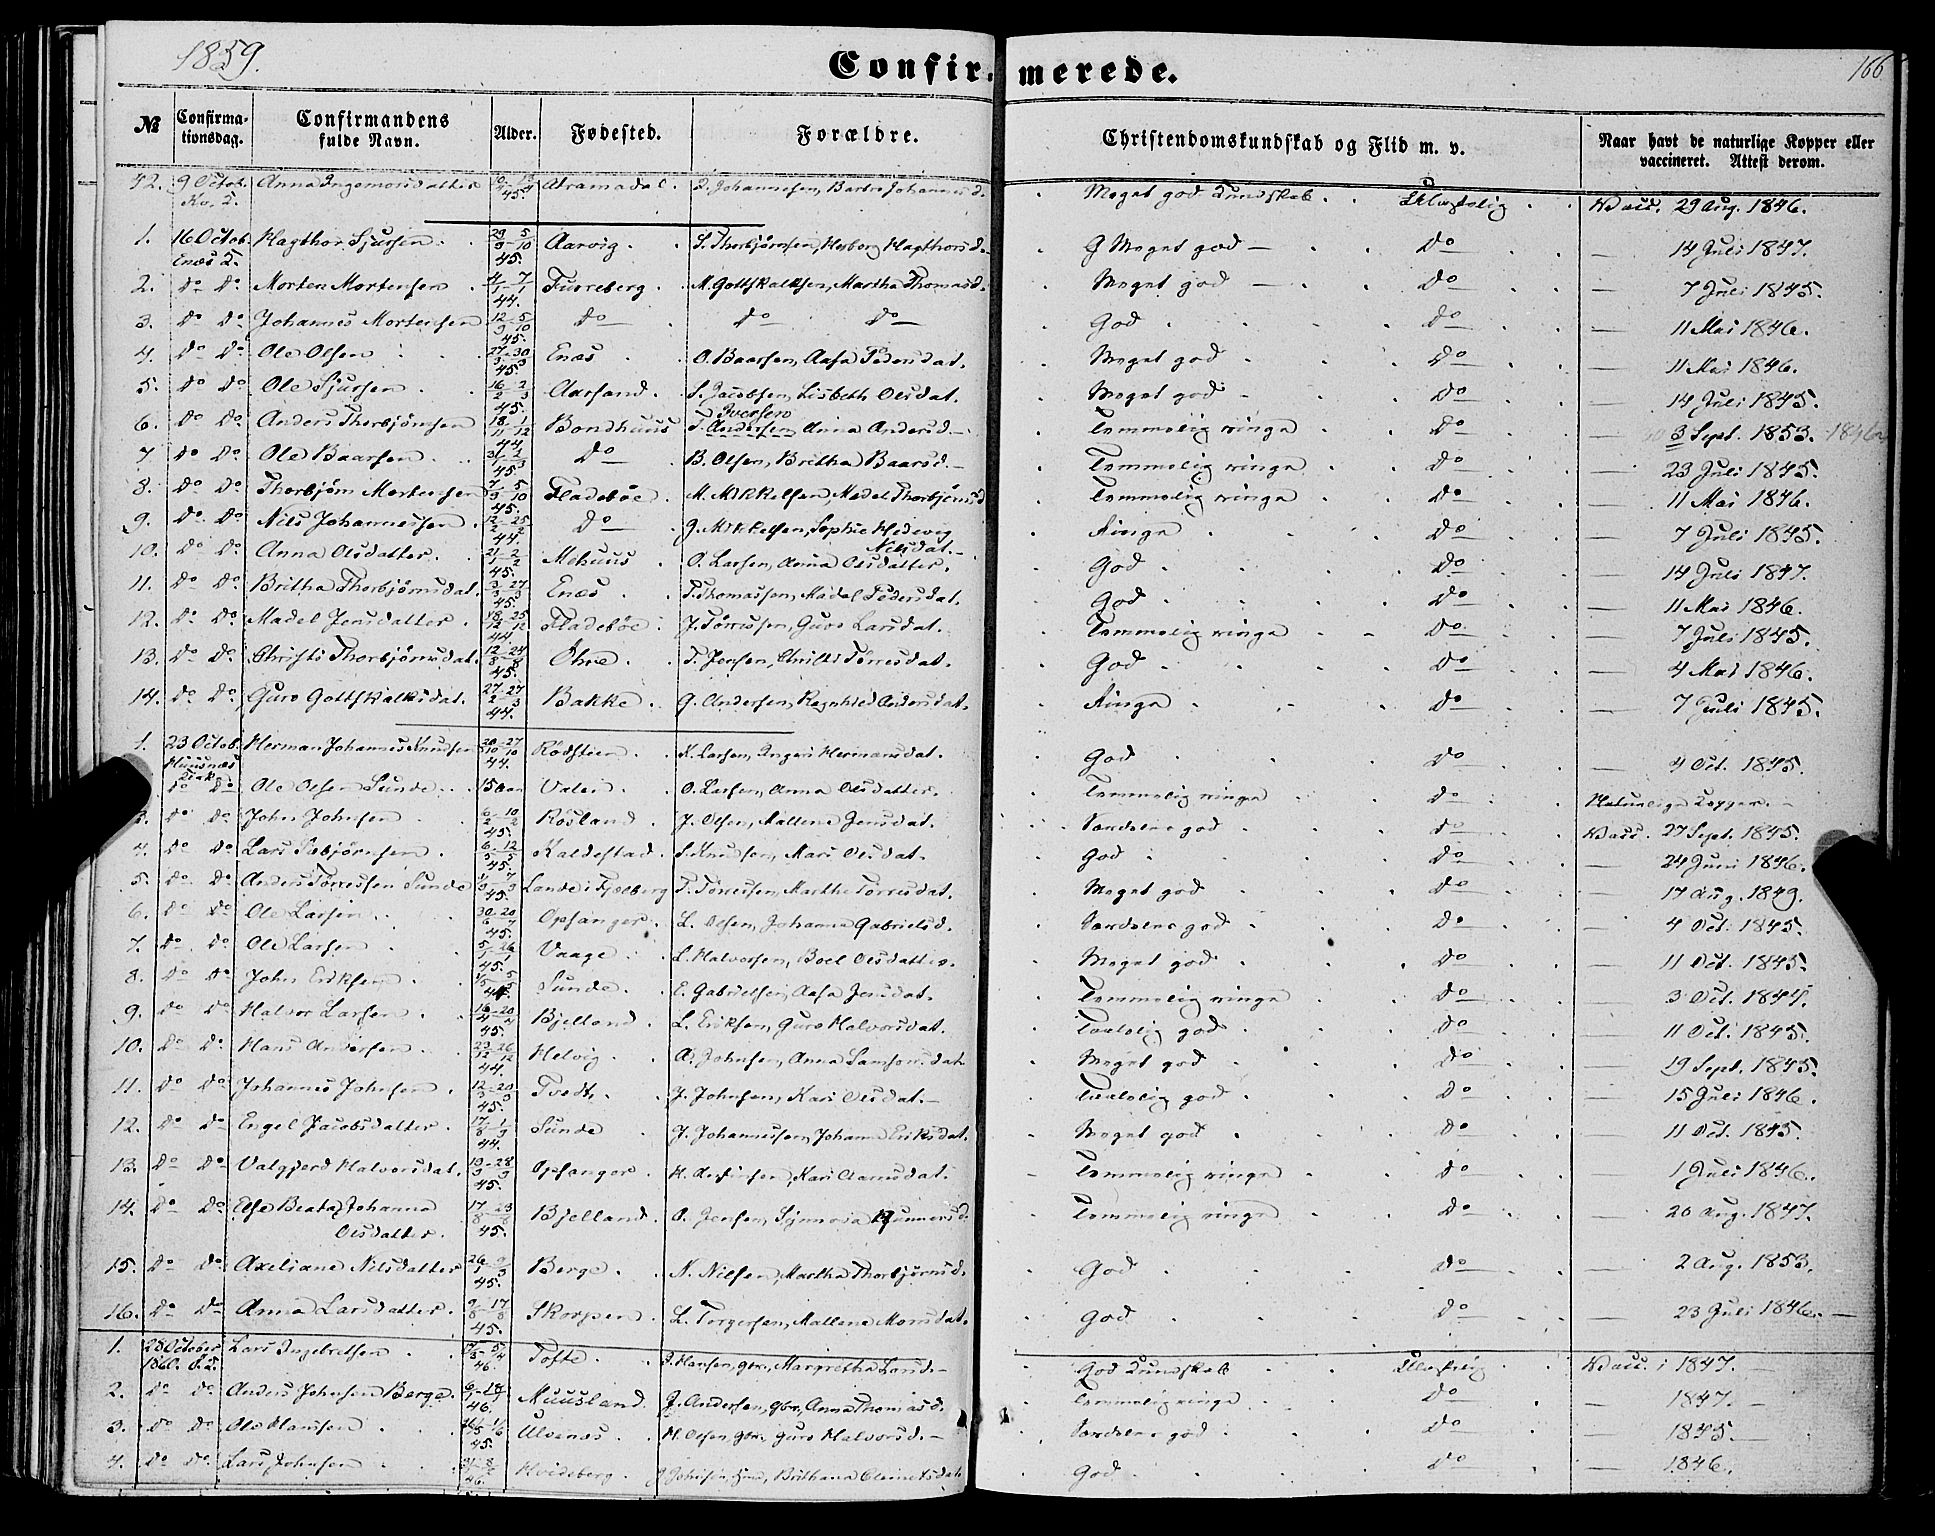 1859.
Confirmerede.
166
№
Confirmationsdag.
Confirmandens fulde Navn.
Alder.
Fødested.
Forældre.
Christendomskundskab og Flid m. v.
Naar havt de naturlige Kopper eller vaccineret. Attest derom.
42. 9 Octob. Kv. S. Anna Ingemorsdatter 45. Johannesen, Johannesd. Meget god Kundskab Vacc. 29 Aug. 1846.
1. 16 Octob. Enæs S. Hagthor Sjursen 45. Aarvig S. Thorbjørnsen, Herborg Hagthorsd. Meget god Do 14 Juli 1847.
2. Do Do Morten Mortensen 44. Furreberg M. Gottskalksen, Martha Thomasd. Meget god Do 7 Juli 1845.
3. Do Do Johannes Mortensen 45. Do Do Do God Do 11 Mai 1846.
4. Do Do Ole Olsen 45. Enæs O. Baarsen, Aasa Pedersdat. Meget god Do 11 Mai 1846.
5. Do Do Ole Sjursen 45. Aarsand S. Jacobsen, Lisbeth Olsdat. Meget god Do 14 Juli 1845.
6. Do Do Anders Thorbjørnsen 44. Bondhuus T. Andersen Iversen Anna Andersd. Temmelig ringe Do 3 Sept. 1853. 1846
7. Do Do Ole Baarsen 45. Do B. Olsen, Britha Baarsd. Temmelig ringe Do 23 Juli 1845.
8. Do Do Thorbjørn Mortensen 45. Fladebøe M. Mikkelsen, Madel Thorbjørnsd. Temmelig ringe Do 11 Mai 1846.
9. Do Do Nils Johannessen 44. Do J. Mikkelsen, Sophie Hedevig Nilsdat. Ringe Do 7 Juli 1845.
10. Do Do Anna Olsdatter 45. Mehuus O. Larsen, Anna Olsdatter. God Do 14 Juli 1847.
11. Do Do Britha Thorbjørnsdat. 45. Enæs T. Thomassen, Madel Pedersdat. God Do 11 Mai 1846.
12. Do Do Madel Jensdatter 44. Fladebøe J. Tørresen, Guro Larsdat. Temmelig ringe Do 7 Juli 1845.
13. Do Do Christi Thorbjørnsdat. 45. Øhre T. Jensen, Christi Tørresdat. God Do 4 Mai 1846.
14. Do Do Guro Gottskalksdat. 44. Bakke G. Andersen, Ragnhild Andersdat. Ringe Do 7 Juli 1845.
1. 23 Octob. Huusnæs Herman Johannes Knudsen 44. Rødstien K. Larsen, Ingeri Hermansdat. God Do 4 Oct. 1845.
Do Do Ole Olsen Sunde 15 Aar Valen O. Larsen, Anna Olsdatter. Temmelig ringe Do Naturlige Kopper.
3. Do Do John Johnsen 45. Røsland J. Olsen, Mallene Jensdat. Særdeles god Do Vacc. 27 Sept. 1845.
4. Do Do Lars Sæbjørnsen 45. Kaldestad S. Knudsen, Mari Olsdat. God Do 24 Juni 1846.
5. Do Do Anders Tørressen Sunde 45. Lande i Fjelberg T. Tørressen, Marthe Tørresdat. Meget god Do 17 Aug. 1849.
6. Do Do Ole Larsen 45. Opsanger L. Olsen, Johanna Gabrielsd. Særdeles god Do 4 Oct. 1845.
7. Do Do Ole Larsen 45. Vaage L. Halvorsen, Boel Olsdatter. Meget god Do 11 Oct. 1845.
8. Do Do John Eriksen Sunde E. Gabrielsen, Aasa Jensdat. Temmelig ringe Do 3 Oct.
9. Do Do Halvor Larsen 45. Bjelland L. Eriksen, Guro Halvorsdat. Taalelig god Do 11 Oct. 1845.
10. Do Do Hans Andersen 44. Helvig A. Johnsen, Anna Samsonsdat. Meget god Do 19 Sept. 1845.
11. Do Do Johannes Johnsen 45. Tvedt J. Johnsen, Kari Olsdat. Taalelig god Do 15 Juli 1846.
12. Do Do Engel Jacobsdatter 44. Sunde J. Johannessen, Johanna Eriksdat. Meget god Do 11 Oct. 1845.
13. Do Do Valgjerd Halvorsdat. 45. Opsanger H. Arfinsen, Kari Aamsdat. Temmelig ringe Do 1 Juli 1846.
14. Do Do Else Beata Johanna Olsdatter. 45. Bjelland O. Jensen, Synnova Gunnersd. Temmelig ringe Do 20 Aug. 1847.
15. Do Do Axeliane Nilsdatter 45. Berge N. Nilsen, Martha Thorbjørnsd. God Do 2 Aug. 1853.
16. Do Do Anna Larsdatter 45. Skorpen L. Torgersen, Mallene Monsdat. God Do 23 Juli 1846.
1. 28 October 1860. Lars Ingebretsen 46. Tofte I. Hansen, Margretha Larsd. God Kundskab Vacc. i 1847.
2. Do Do Anders Johnsen Berge 46. Muusland J. Andersen, Anna Thomasd. Temmelig ringe Do 1847.
3. Do Do Ole Hansen 45. Ulvenæs H. Olsen Guro Halvorsd. Særdeles god Do 1845.
4. Do Do Lars Johnsen 46. Hvideberg J. Johnsen, Brithana Clemetsdat. God Do 1846.